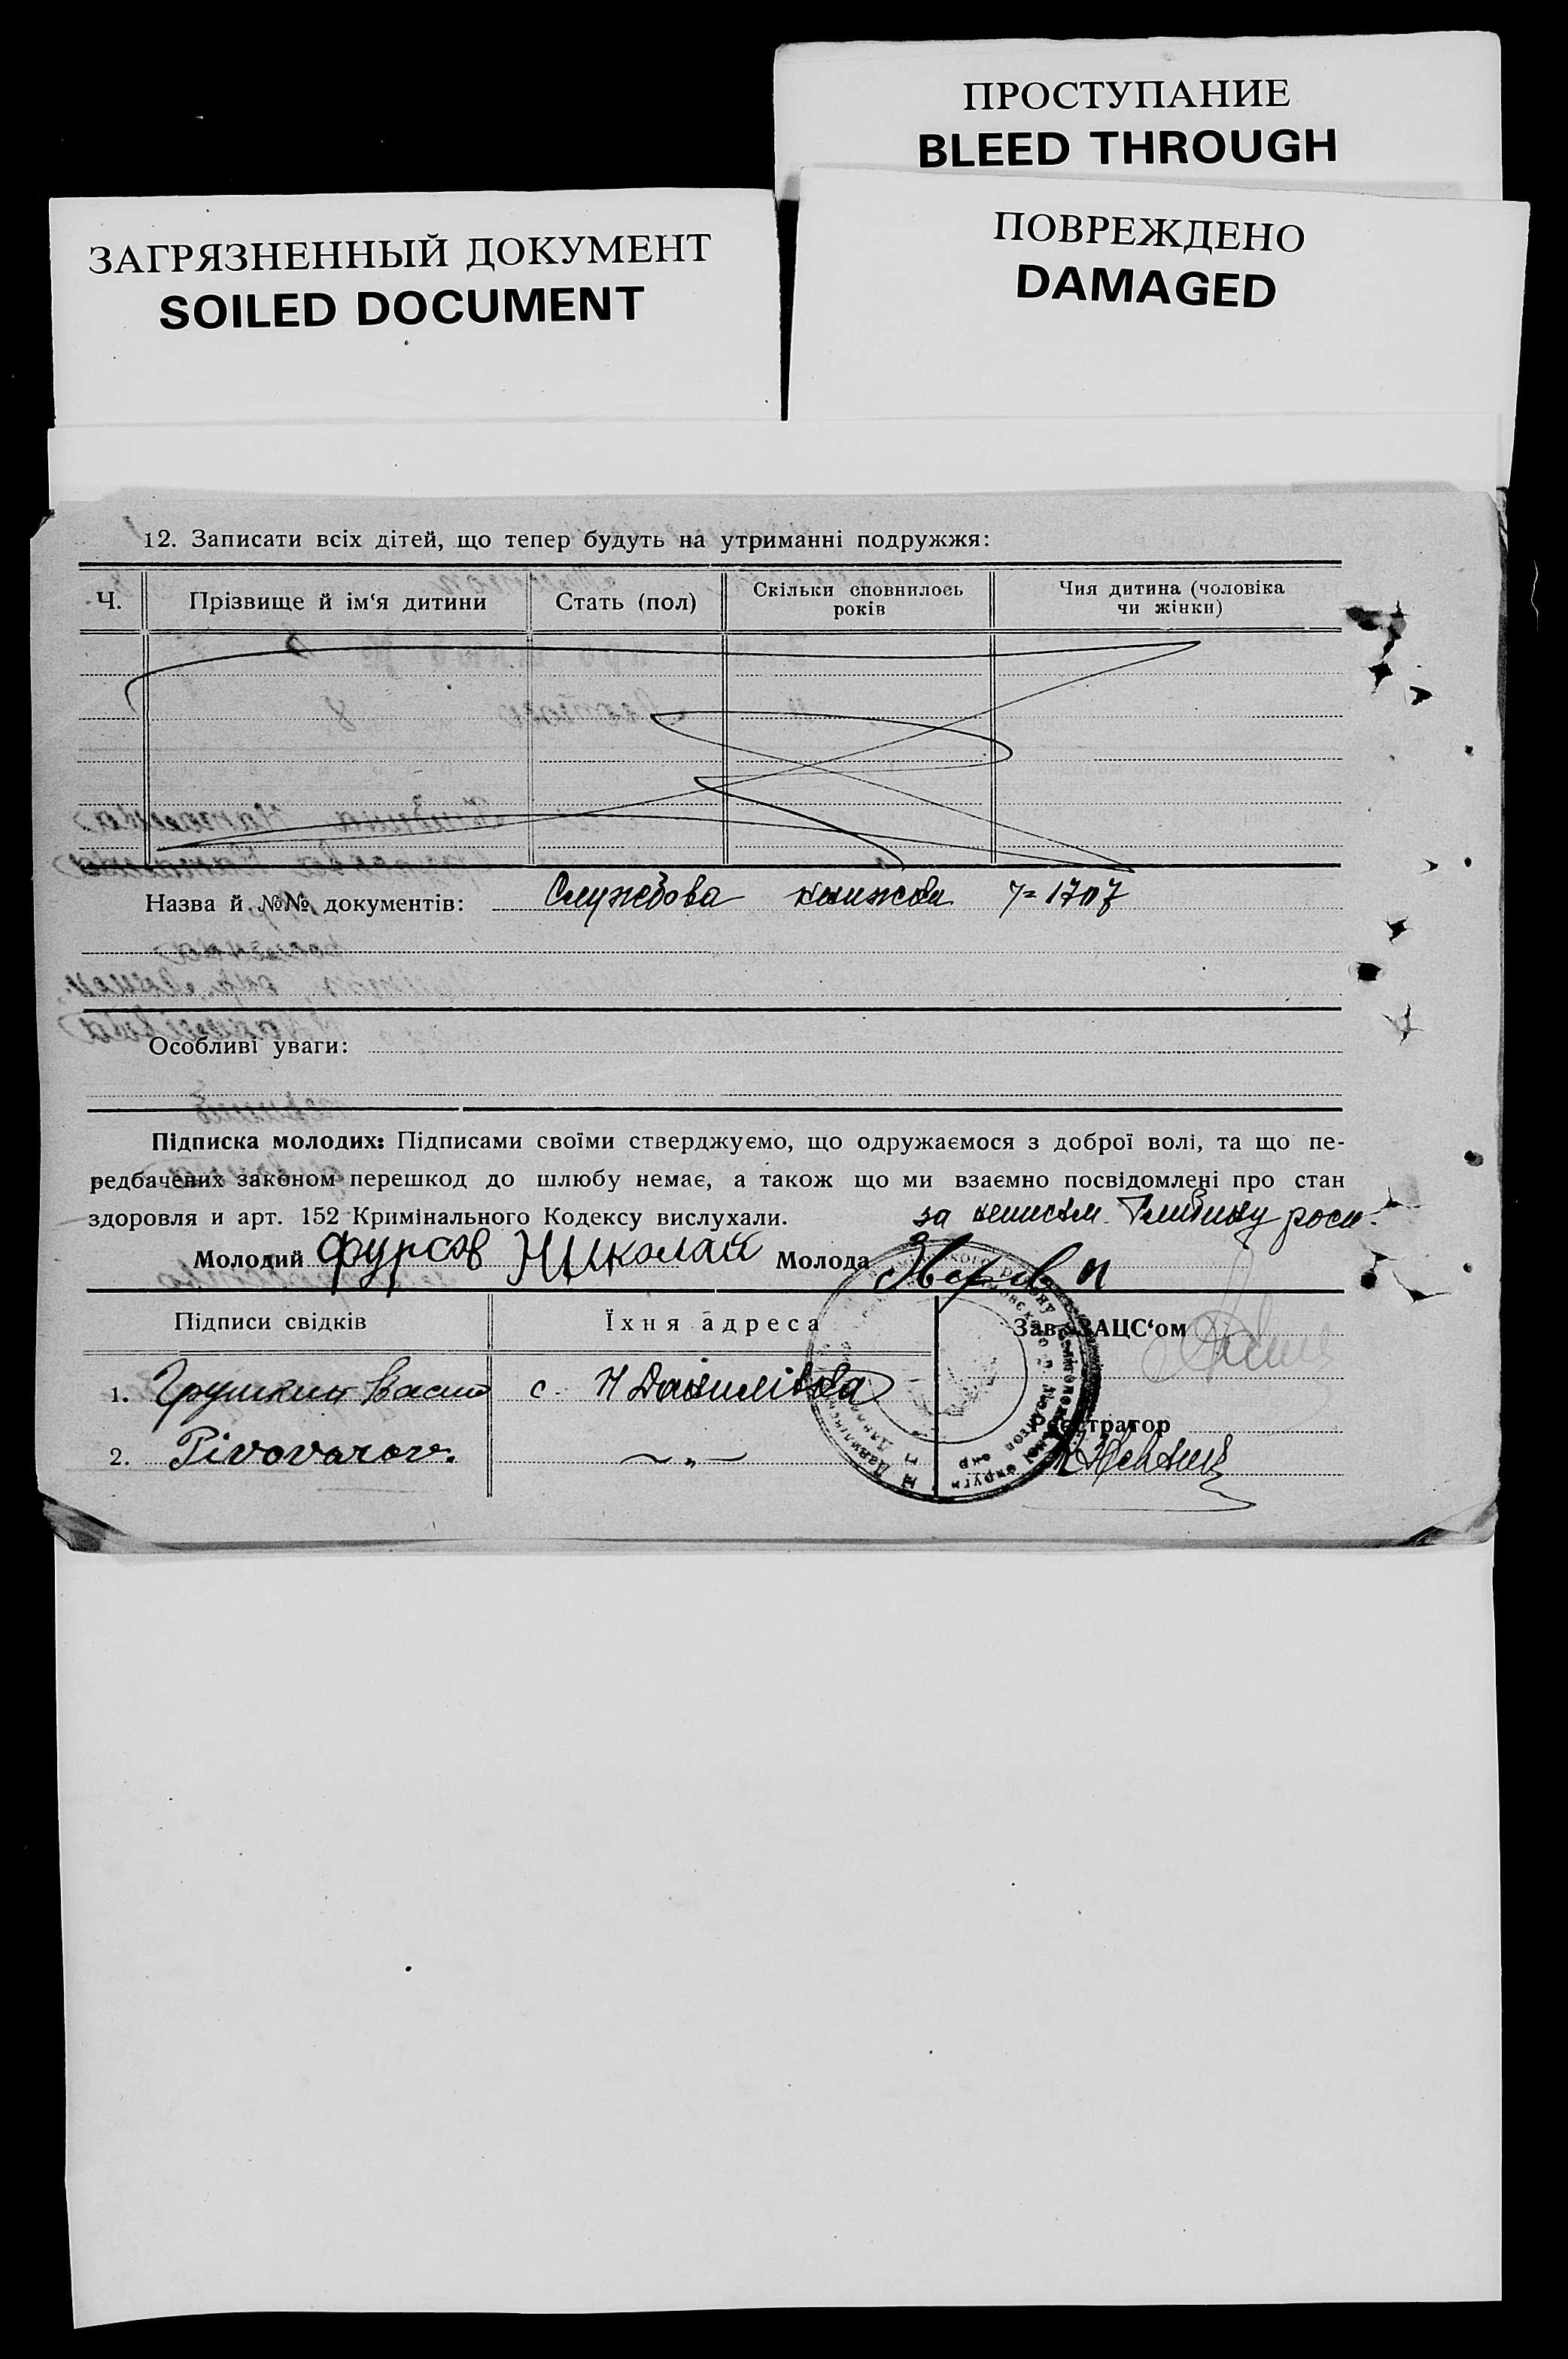 ПРОСТУПАНИЕ
BLEED THROUGH
ЗАГРЯЗНЕННЫЙ ДОКУМЕНТ
SOILED DOCUMENT
ПОВРЕЖДЕНО
DAMAGED
12. Записати всіх дітей, що тепер будуть на утриманні подружжя:
Ч. Прізвище й ім‘я дитини Стать (пол) Скільки сповнилось років Чия дитина (чоловіка чи жінки)
Назва й №№ документів: Службова книжка 1707
Особливі уваги:
Підписка молодих: Підписами своїми стверджуємо, що одружаємося з доброї волі, та що пе-
редбачених законом перешкод до шлюбу немає, а також що ми взаємно посвідомлені про стан
здоровля и арт. 152 Кримінального Кодексу вислухали.
за
Молодий Фурсов Николай Молода
Підписи свідків Їхня адреса Зав. ЗАЦС‘ом
1. Грушкин с. Н Данилівка
Реєстратор
2. Pivovarov. — „ —